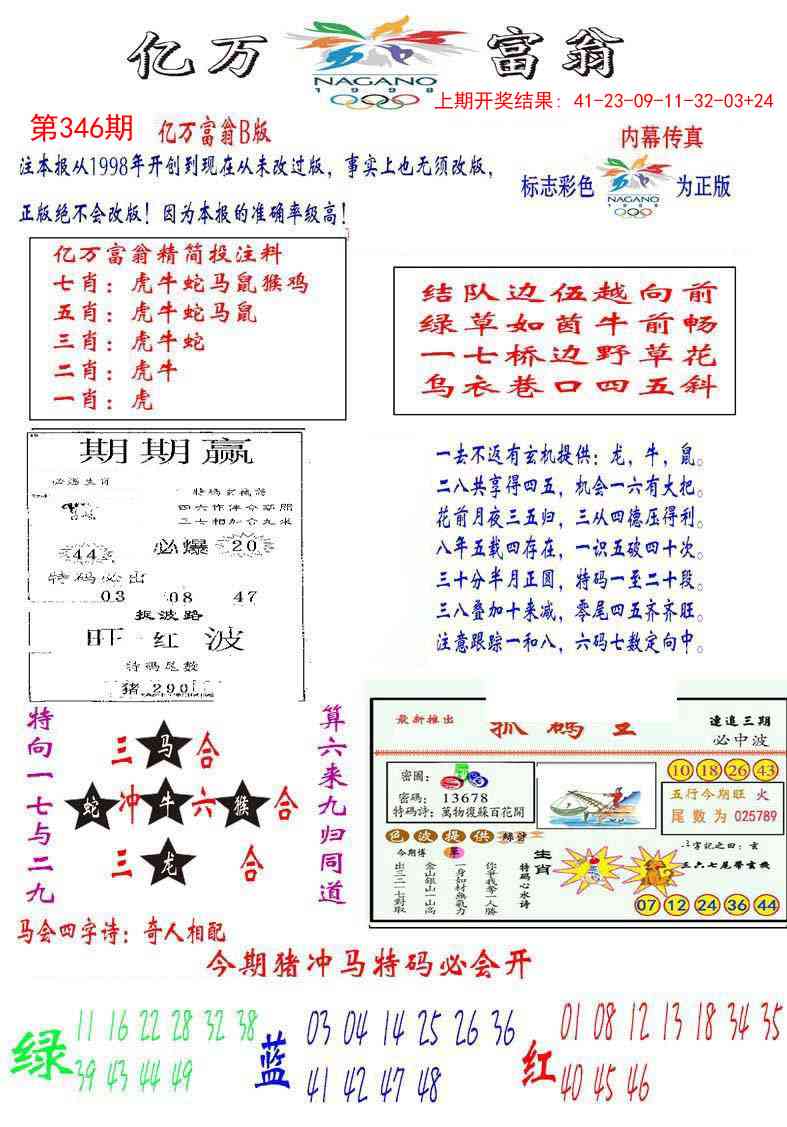 亿万富翁
NAGANO
1998
上期开奖结果：41-23-09-11-32-03+24
第346期 亿万富翁B版
内幕传真
注本报从1998年开创到现在从未改过版，事实上也无须改版，
正版绝不会改版！因为本报的准确率级高！
标志彩色 NAGANO 1998 为正版
亿万富翁精简投注料
七肖：虎牛蛇马鼠猴鸡
五肖：虎牛蛇马鼠
三肖：虎牛蛇
二肖：虎牛
一肖：虎
结队边伍越向前
绿草如茵牛前畅
一七桥边野草花
乌衣巷口四五斜
期期赢
必爆
44
20
特码必出
03 08 47
捉波路
旺红波
特碼尾數
猪290
一去不返有玄机提供：龙，牛，鼠。
二八共享得四五，机会一六有大把。
花前月夜三五归，三从四德压得利。
八年五载四存在，一识五破四十次。
三十分半月正圆，特码一至二十段。
三八叠加十来减，零尾四五齐齐旺。
注意跟踪一和八，六码七数定向中。
特向一七与二九
三马合
蛇冲牛六猴合
三龙合
算六来九归同道
马会四字诗：奇人相配
最新推出
抓碼王
連追三期
必中波
密圖：
密碼：13678
特碼詩：萬物復蘇百花開
10 18 26 43
五行今期旺 火
尾數为 025789
色波提供
今期博
出三二一七對取
金山銀山一山高
一身如材無氣力
你爭我奪一人勝
特碼心水诗
生肖
三六七尾帶玄機
07 12 24 36 44
今期猪冲马特码必会开
绿
11 16 22 28 32 38
39 43 44 49
蓝
03 04 14 25 26 36
41 42 47 48
红
01 08 12 13 18 34 35
40 45 46